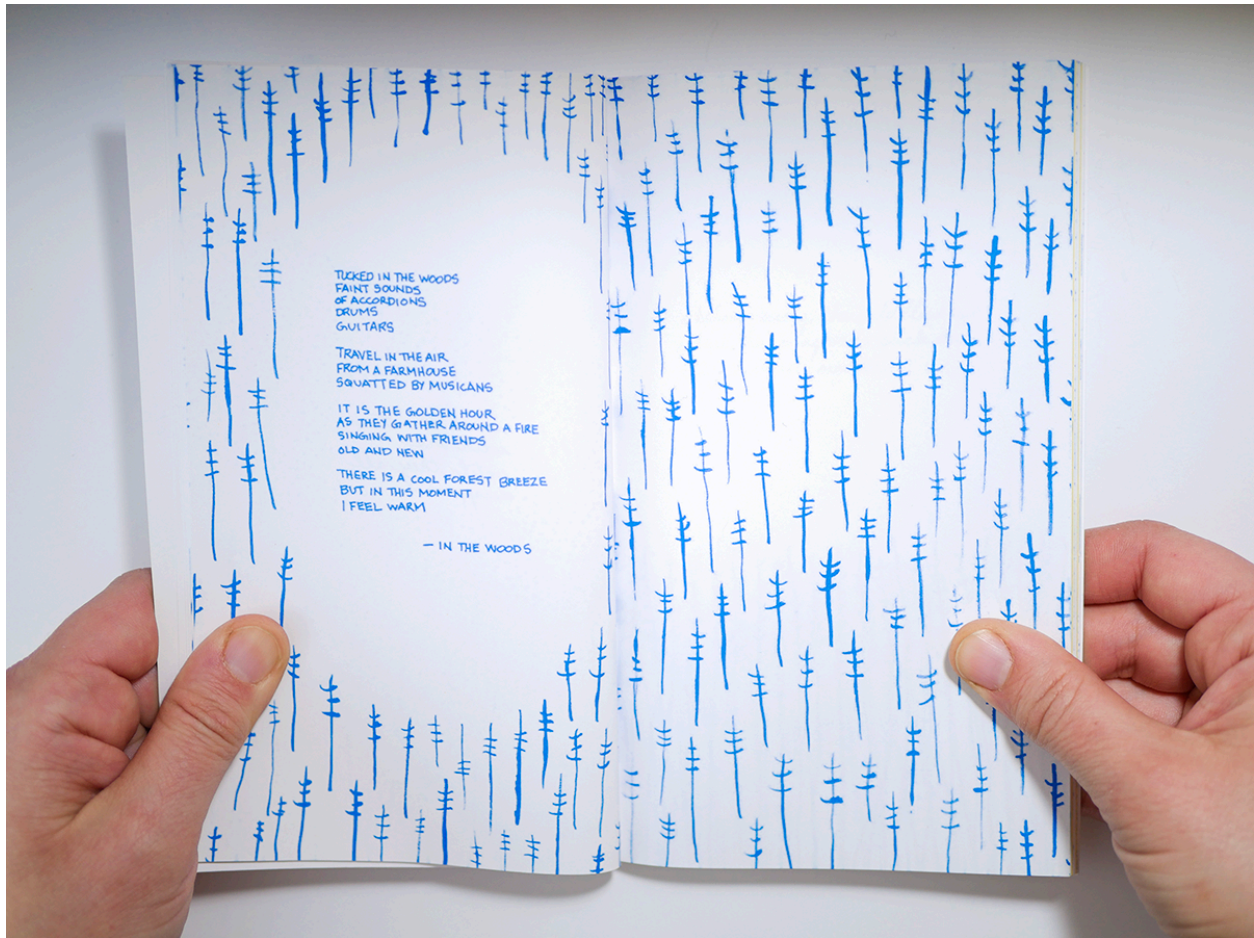 TUCKED IN THE WOODS
FAINT SOUNDS
OF ACCORDIONS
DRUMS
GUITARS
TRAVEL IN THE AIR
FROM A FARMHOUSE
SQUATTED BY MUSICANS
IT IS THE GOLDEN HOUR
AS THEY GATHER AROUND A FIRE
SINGING WITH FRIENDS
OLD AND NEW
THERE IS A COOL FOREST BREEZE
BUT IN THIS MOMENT
I FEEL WARM
— IN THE WOODS